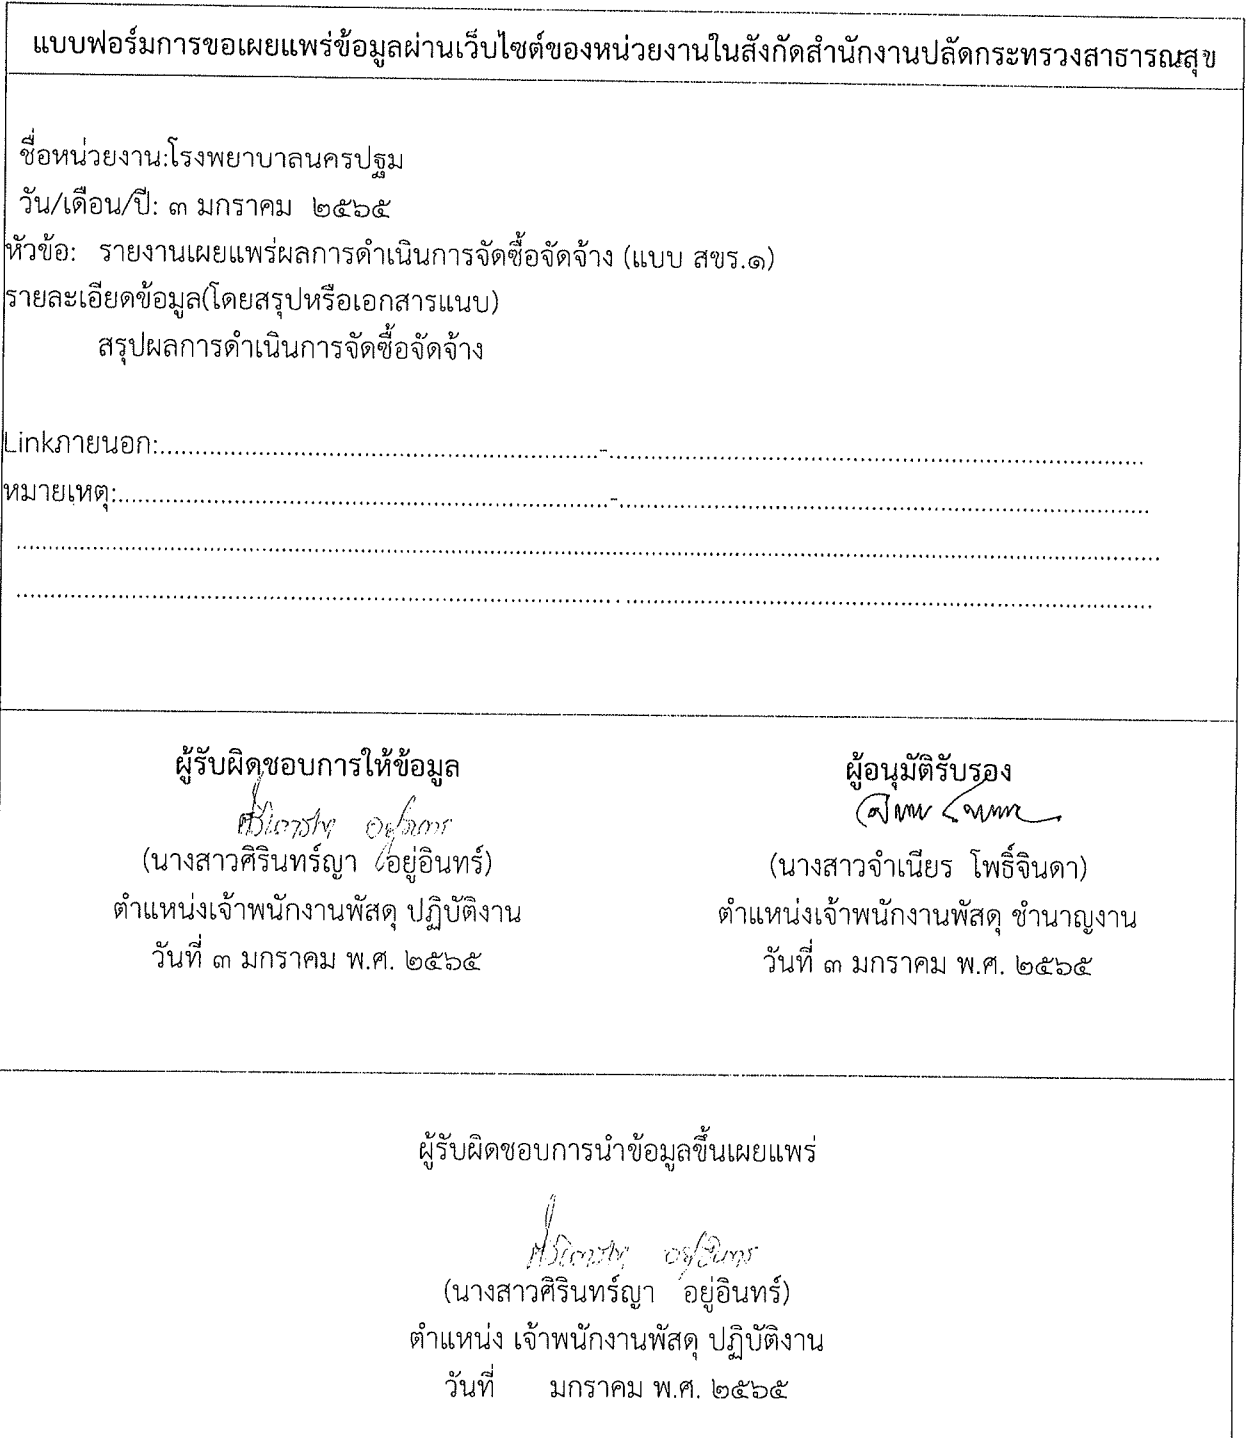 แบบฟอร์มการขอเผยแพร่ข้อมูลผ่านเว็บไซต์ของหน่วยงานในสังกัดสำนักงานปลัดกระทรวงสาธารณสุข
ชื่อหน่วยงาน:โรงพยาบาลนครปฐม
วัน/เดือน/ปี: ๓ มกราคม ๒๕๖๕
หัวข้อ: รายงานเผยแพร่ผลการดำเนินการจัดซื้อจัดจ้าง (แบบ สขร.๑)
รายละเอียดข้อมูล(โดยสรุปหรือเอกสารแนบ)
สรุปผลการดำเนินการจัดซื้อจัดจ้าง
Linkภายนอก:..............................-..............................
หมายเหตุ:..............................-..............................
ผู้รับผิดชอบการให้ข้อมูล
(นางสาวศิรินทร์ญา อยู่อินทร์)
ตำแหน่งเจ้าพนักงานพัสดุ ปฏิบัติงาน
วันที่ ๓ มกราคม พ.ศ. ๒๕๖๕
ผู้อนุมัติรับรอง
(นางสาวจำเนียร โพธิ์จินดา)
ตำแหน่งเจ้าพนักงานพัสดุ ชำนาญงาน
วันที่ ๓ มกราคม พ.ศ. ๒๕๖๕
ผู้รับผิดชอบการนำข้อมูลขึ้นเผยแพร่
(นางสาวศิรินทร์ญา อยู่อินทร์)
ตำแหน่ง เจ้าพนักงานพัสดุ ปฏิบัติงาน
วันที่ มกราคม พ.ศ. ๒๕๖๕